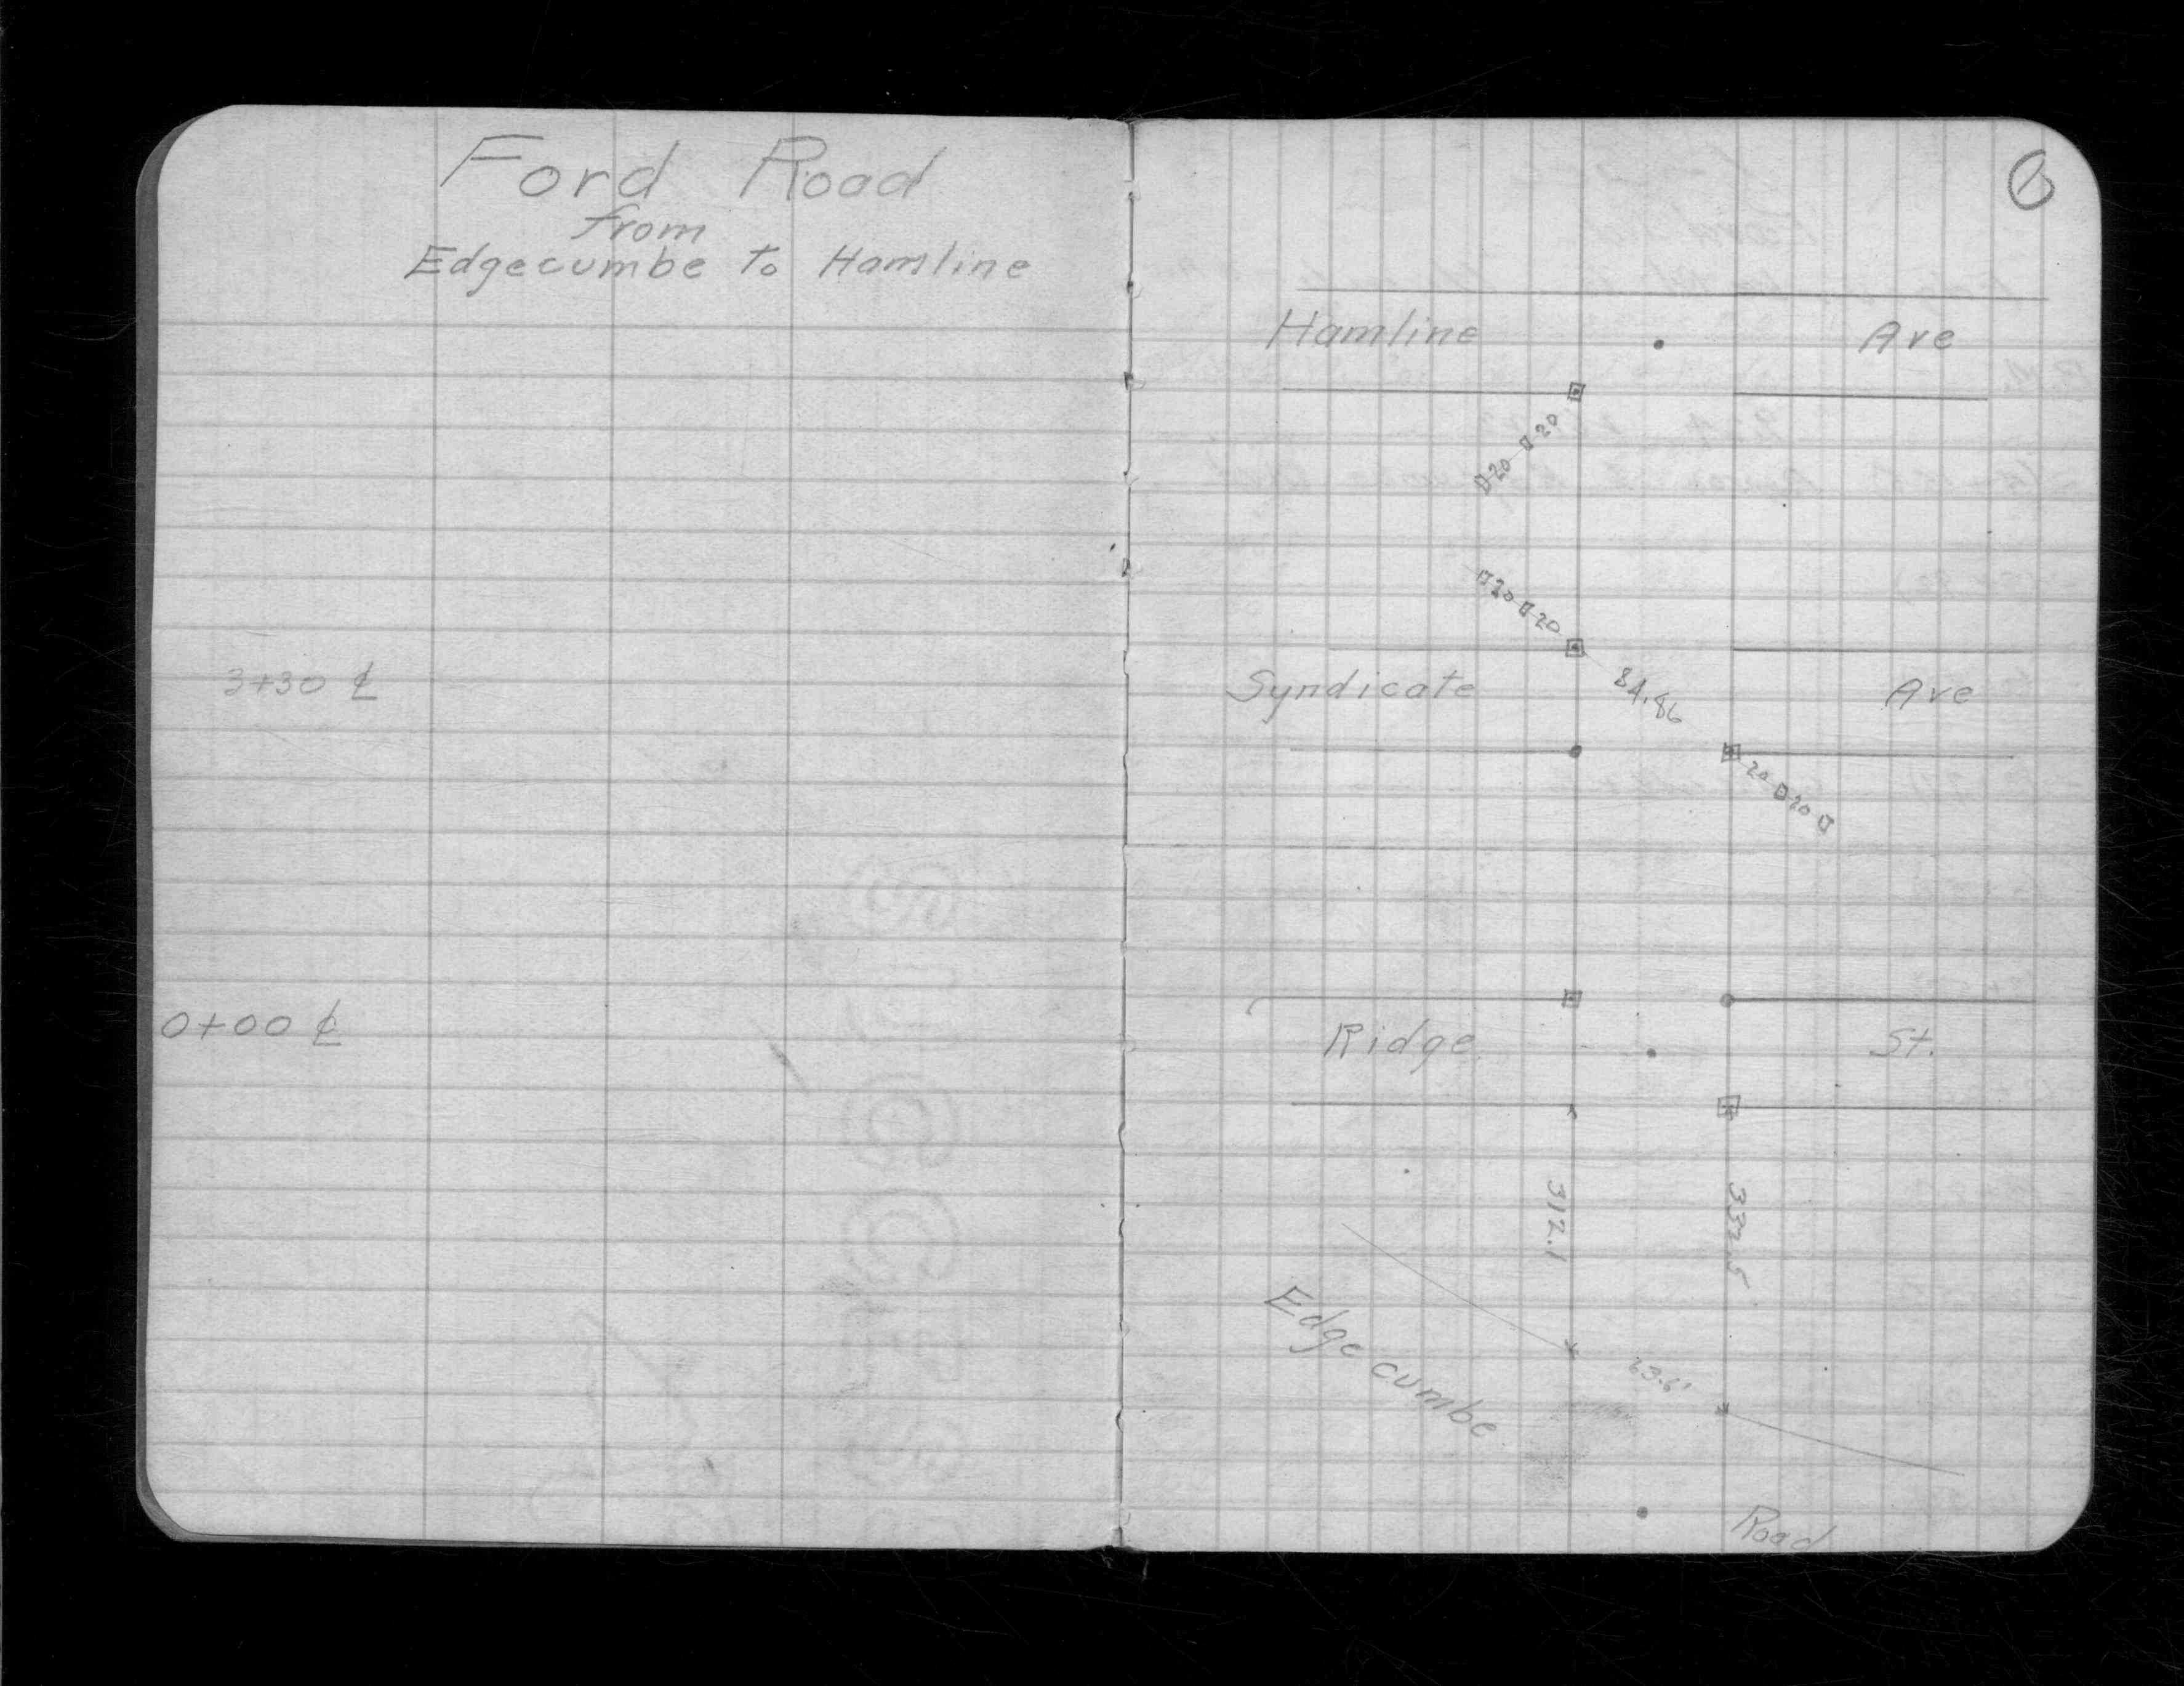 Ford Road
from
Edgecumbe to Hamline
3+30 ℄
0+00 ℄
Hamline Ave
20 20
20 20
Syndicate Ave
84.86
20 20
Ridge St.
317.1
333.5
Edgecumbe
Road